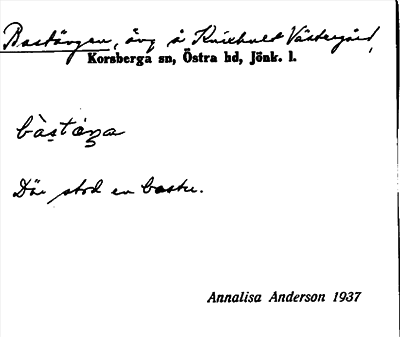 Bastängen, äng å Knixhult Västergård,
Korsberga sn, Östra hd, Jönk. l.
bàstäŋa
Där stod en bastu.
Annalisa Anderson 1937